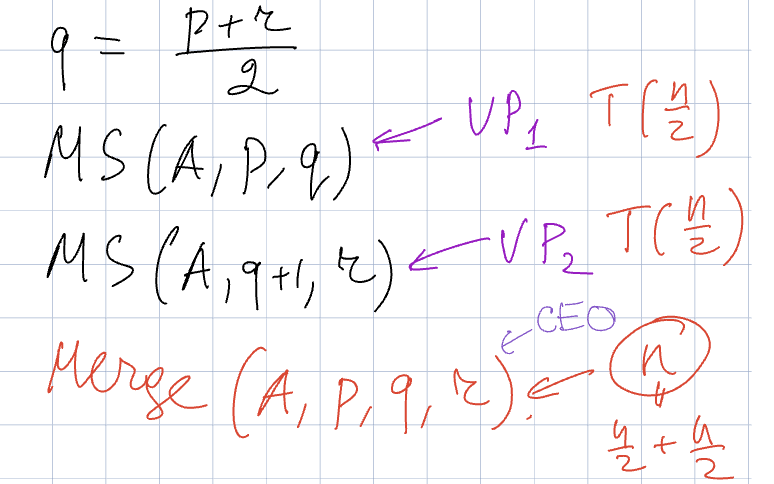 q = (p+r)/2
MS(A, p, q) ← VP₁ T(n/2)
MS(A, q+1, r) ← VP₂ T(n/2)
← CEO
Merge(A, p, q, r). ← n
↓
n/2 + n/2